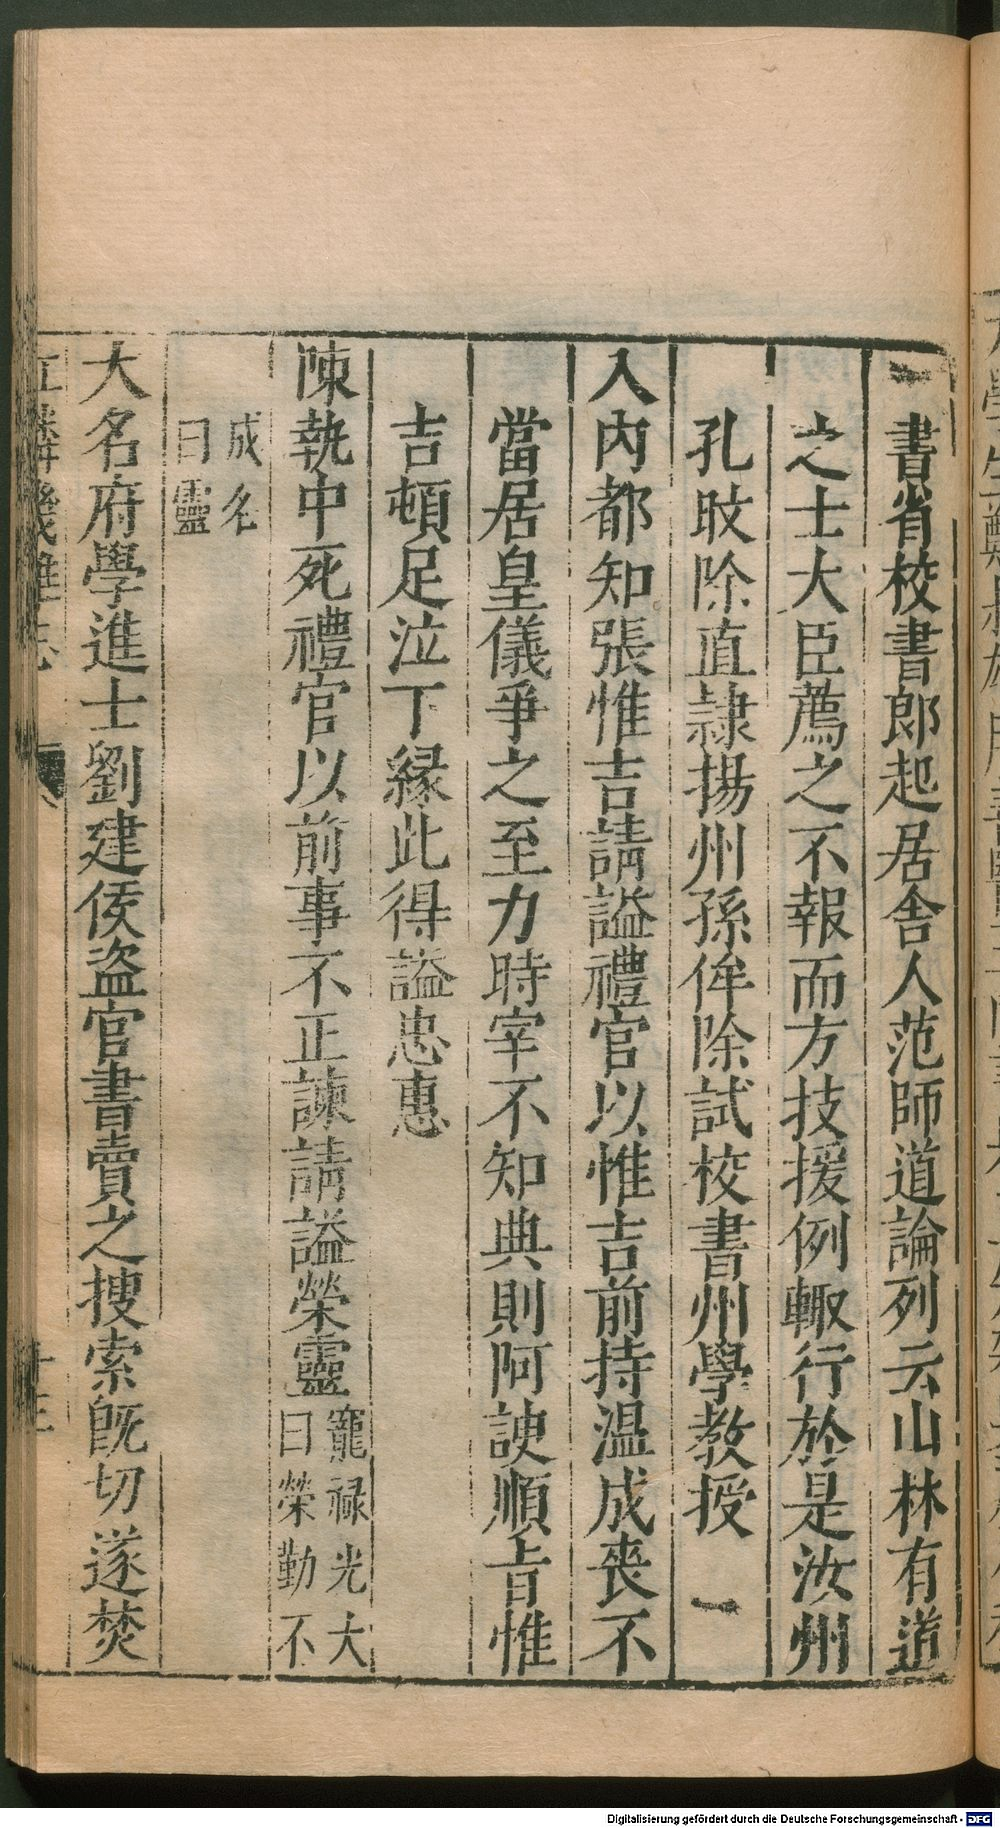 書省校書郎起居舍人范師道論列云山林有道
之士大臣薦之不報而方技援例輙行於是汝州
孔旼除直隷揚州孫侔除試校書州學教授
入內都知張惟吉請謚禮官以惟吉前持温成喪不
當居皇儀爭之至力時宰不知典則阿諛順旨惟
吉頓足泣下縁此得謚忠惠
陳執中死禮官以前事不正諫請謚榮靈寵祿光大
曰榮勤不
成名
曰靈
大名府學進士劉建侯盜官書賣之搜索旣切遂焚
江隣幾雜志
Digitalisierung gefördert durch die Deutsche Forschungsgemeinschaft - DFG